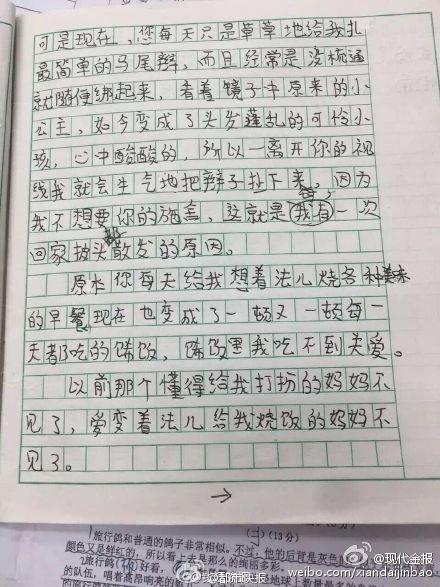 可是现在，您每天只是草草地给我扎
最简单的马尾辫，而且经常是没梳通
就随便绑起来，看着镜子中原来的小
公主，如今变成了头发蓬乱的可怜小
孩，心中酸酸的，所以一离开你的视
线我就会生气地把辫子扯下来，因为
我不想要你的施舍，这就是我有一次
回家披头散发的原因。
原本你每天给我想着法儿烧各种美味
的早餐现在也变成了一顿又一顿每一
天都吃的稀饭，稀饭里我吃不到关爱。
以前那个懂得给我打扮的妈妈不
见了，爱变着法儿给我烧饭的妈妈不
见了。
→
(二)(13分)
旅行鸽和普通的鸽子非常相似。不过，他的后背是灰色
颜色又是鲜红的，所以看上去是那么的绚丽多彩。
旅行鸽
好看，
的队伍，唱着高昂响亮的
地球上数量最多的鸟
@现代金报
weibo.com/xiandaijinbao